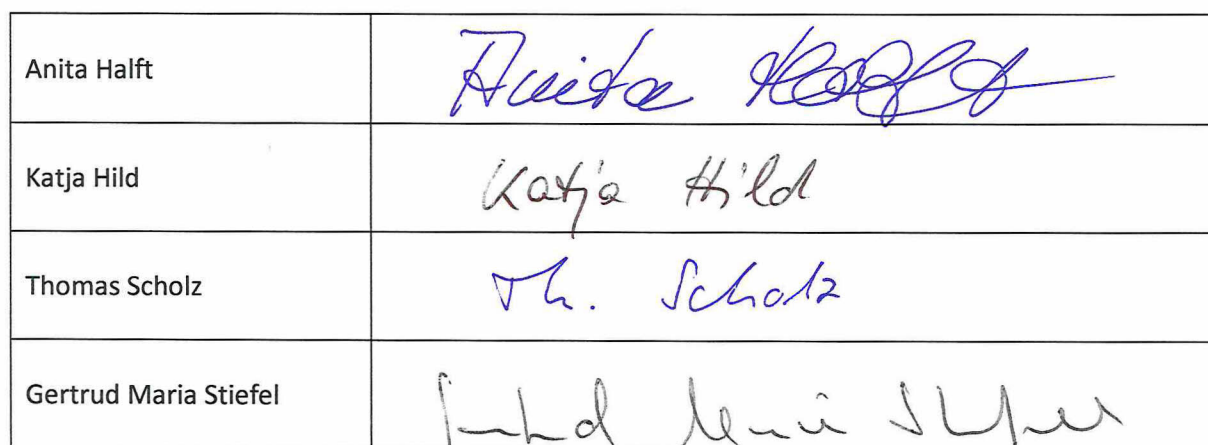 Anita Halft Anita Halft
Katja Hild Katja Hild
Thomas Scholz Th. Scholz
Gertrud Maria Stiefel Gertrud Maria Stiefel